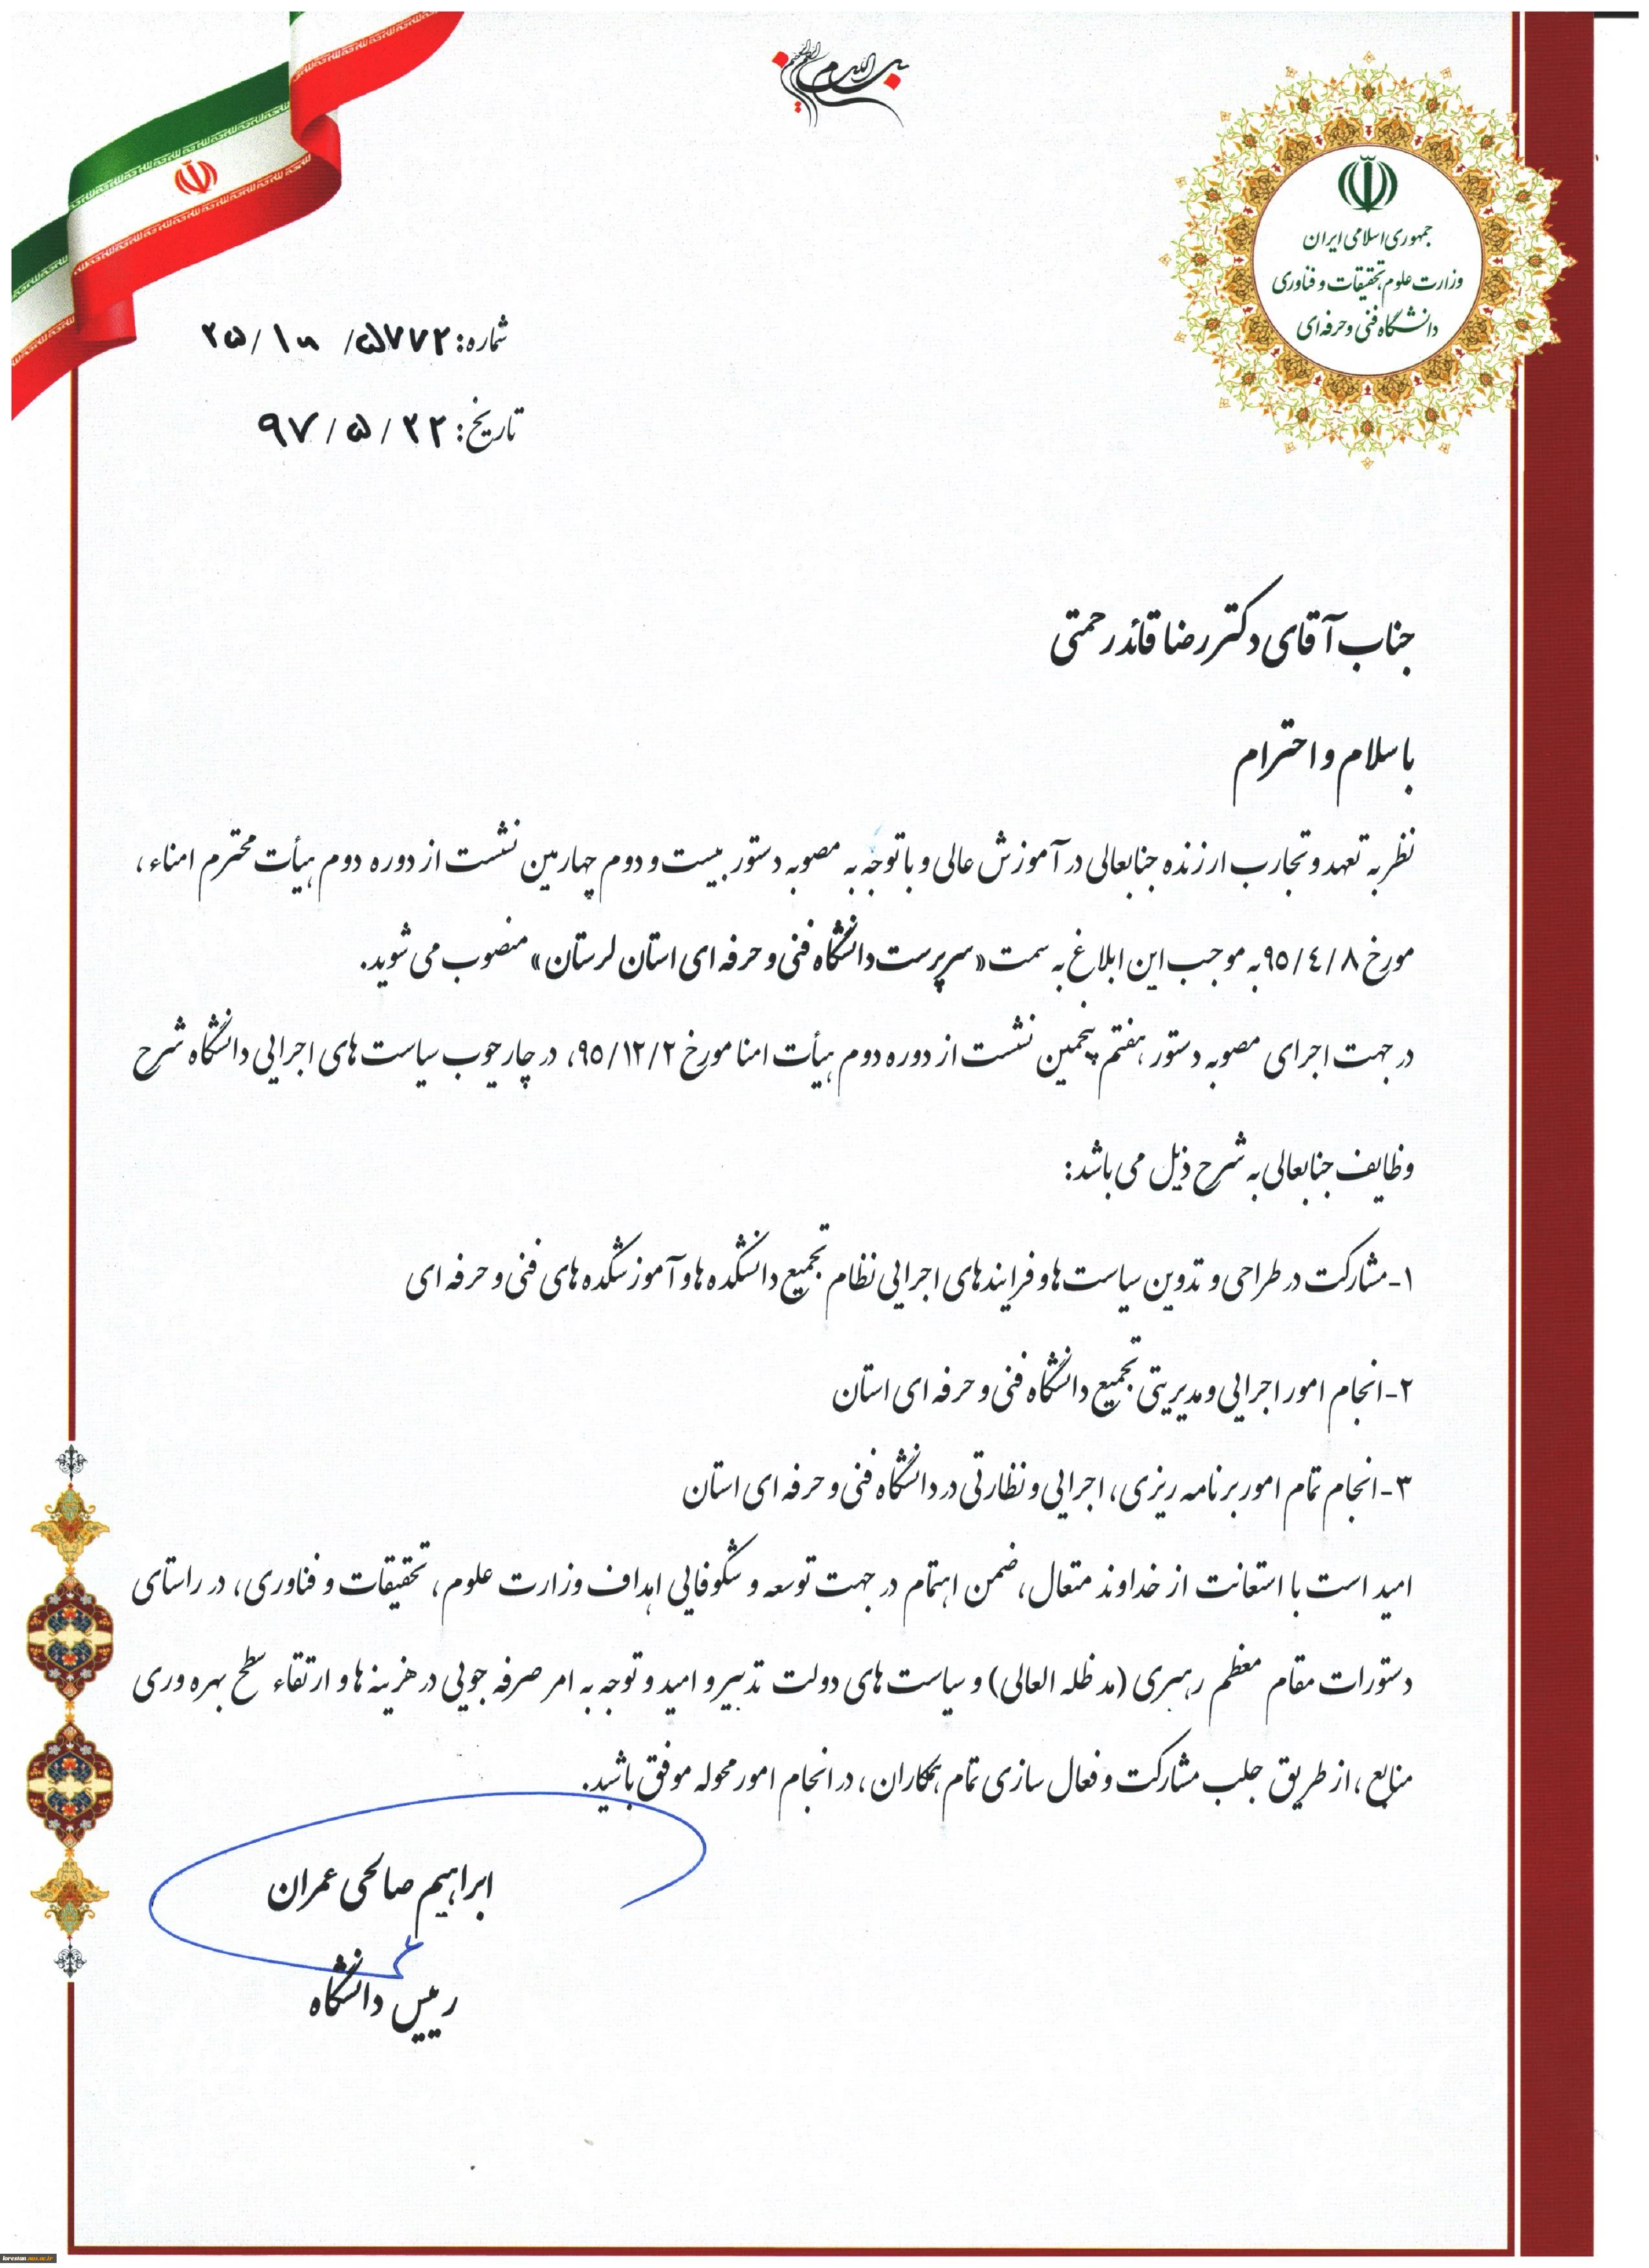 بسم الله الرحمن الرحیم
جمهوری اسلامی ایران
وزارت علوم، تحقیقات و فناوری
دانشگاه فنی و حرفه‌ای
شماره: ۲۵/۱۰ /۵۷۷۲
تاریخ: ۹۷/۵/۲۲
جناب آقای دکتر رضا قائدرحمتی
با سلام و احترام
نظر به تعهد و تجارب ارزنده جنابعالی در آموزش عالی و با توجه به مصوبه دستور بیست و دوم چهارمین نشست از دوره دوم هیأت محترم امناء،
مورخ ۹۵/۴/۸ به موجب این ابلاغ به سمت «سرپرست دانشگاه فنی و حرفه ای استان لرستان» منصوب می شوید.
در جهت اجرای مصوبه دستور هفتم پنجمین نشست از دوره دوم هیأت امنا مورخ ۹۵/۱۲/۲، در چارچوب سیاست های اجرایی دانشگاه شرح
وظایف جنابعالی به شرح ذیل می باشد:
۱-مشارکت در طراحی و تدوین سیاست ها و فرایندهای اجرایی نظام تجمیع دانشکده ها و آموزشکده های فنی و حرفه ای
۲-انجام امور اجرایی و مدیریتی تجمیع دانشگاه فنی و حرفه ای استان
۳-انجام تمام امور برنامه ریزی، اجرایی و نظارتی در دانشگاه فنی و حرفه ای استان
امید است با استعانت از خداوند متعال، ضمن اهتمام در جهت توسعه و شکوفایی اهداف وزارت علوم، تحقیقات و فناوری، در راستای
دستورات مقام معظم رهبری (مد ظله العالی) و سیاست های دولت تدبیر و امید و توجه به امر صرفه جویی در هزینه ها و ارتقاء سطح بهره وری
منابع، از طریق جلب مشارکت و فعال سازی تمام همکاران، در انجام امور محوله موفق باشید.
ابراهیم صالحی عمران
رییس دانشگاه